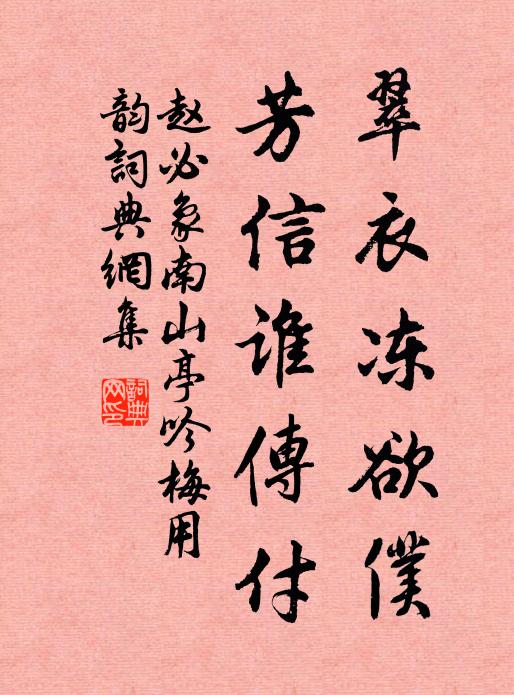 翠衣冻欲僕
芳信谁傳付
赵必象南山亭吟梅用
韵詞典網集
詞典網印